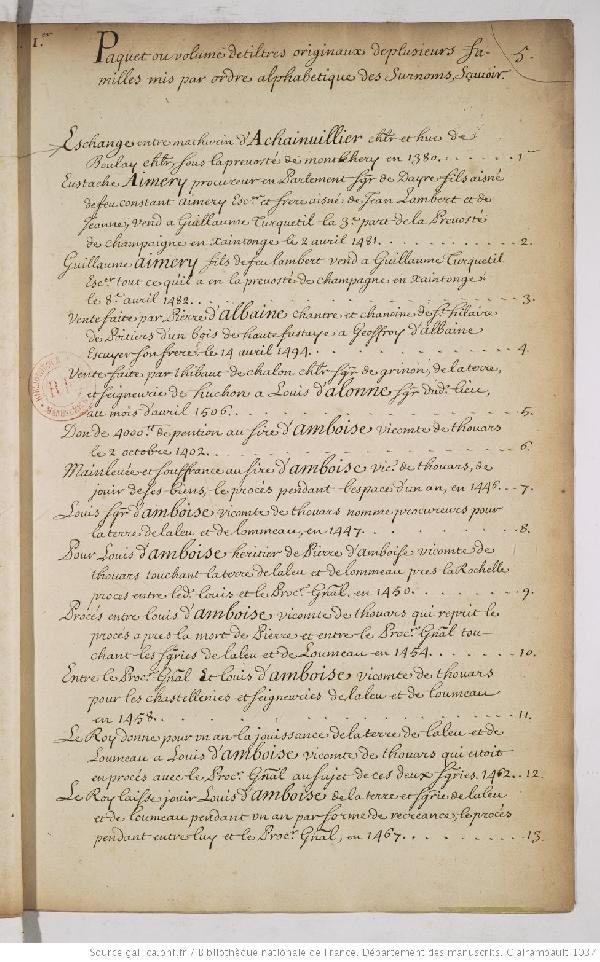 1.er
Paquet ou volume de tiltres originaux de plusieurs fa- 5.
milles mis par ordre alphabetique des Surnoms, Sçavoir.
Eschange entre mathurin d'Achainvillier chlr et hue de
Boulay chlr, sous la prevosté de montlhery en 1380. 1
Eustache Aimery procureur en Parlement sgr de Dayre fils aisné
de feu constant aimery Escer et frere aisné de Jean Lambert et de
Jeanne, vend a Guillaume Turquetil la 3e part de la Prevosté
de champaigne en Xaintonge le 2 avril 1481. 2.
Guillaume aimery fils de feu lambert vend a Guillaume Turquetil
Escer tout ce qu'il a en la prevosté de champagne en Xaintonge
le 8e avril 1482. 3.
Vente faite par Pierre d'albaine chantre et chanoine de St. hilaire
de Poitiers d'un bois de haute fustaye a Geoffroy d'albaine
Escuyer son frere, le 14 avril 1494. 4.
Vente faite par thibaut de chalon chlr sgr de grinon, de la terre,
et seigneurie de huchon a Louis d'alonne sgr dud. lieu,
au mois d'avril 1506. 5.
Don de 4000tt de pention au sire d'amboise vicomte de thouars
le 2 octobre 1402. 6.
Mainlevée et souffrance au sire d'amboise vic. de thouars, de
jouir de ses biens, le procés pendant l'espace d'un an, en 1446. 7.
Louis sgr d'amboise vicomte de thouars nomme procureurs pour
la terre de laleu et de lommeau, en 1447. 8.
Pour Louis d'amboise heritier de Pierre d'amboise vicomte de
thouars touchant la terre de laleu et de lommeau pres la Rochelle
procés entre led. louis et le Procr. Gnal, en 1450. 9.
Procés entre louis d'amboise vicomte de thouars qui reprit le
procés apres la mort de Pierre et entre le Procr. Gnal tou-
chant les sgries de laleu et de Loumeau en 1454. 10.
Entre le Procr. Gnal Et louis d'amboise vicomte de thouars
pour les chastellenies et seigneuries de laleu et de loumeau
en 1458. 11.
Le Roy donne pour un an la jouissance de la terre de laleu et de
Loumeau a Louis d'amboise vicomte de thouars qui estoit
en procés avec le Procr. Gnal au sujet de ces deux sgries. 1462. 12.
Le Roy laisse jouir Louis d'amboise de la terre et sgrie de laleu
et de loumeau pendant un an par forme de recreance, le procés
pendant entre luy et le Procr. Gnal, en 1467. 13.
Source gallica.bnf.fr / Bibliothèque nationale de France. Département des manuscrits. Clairambault 1037